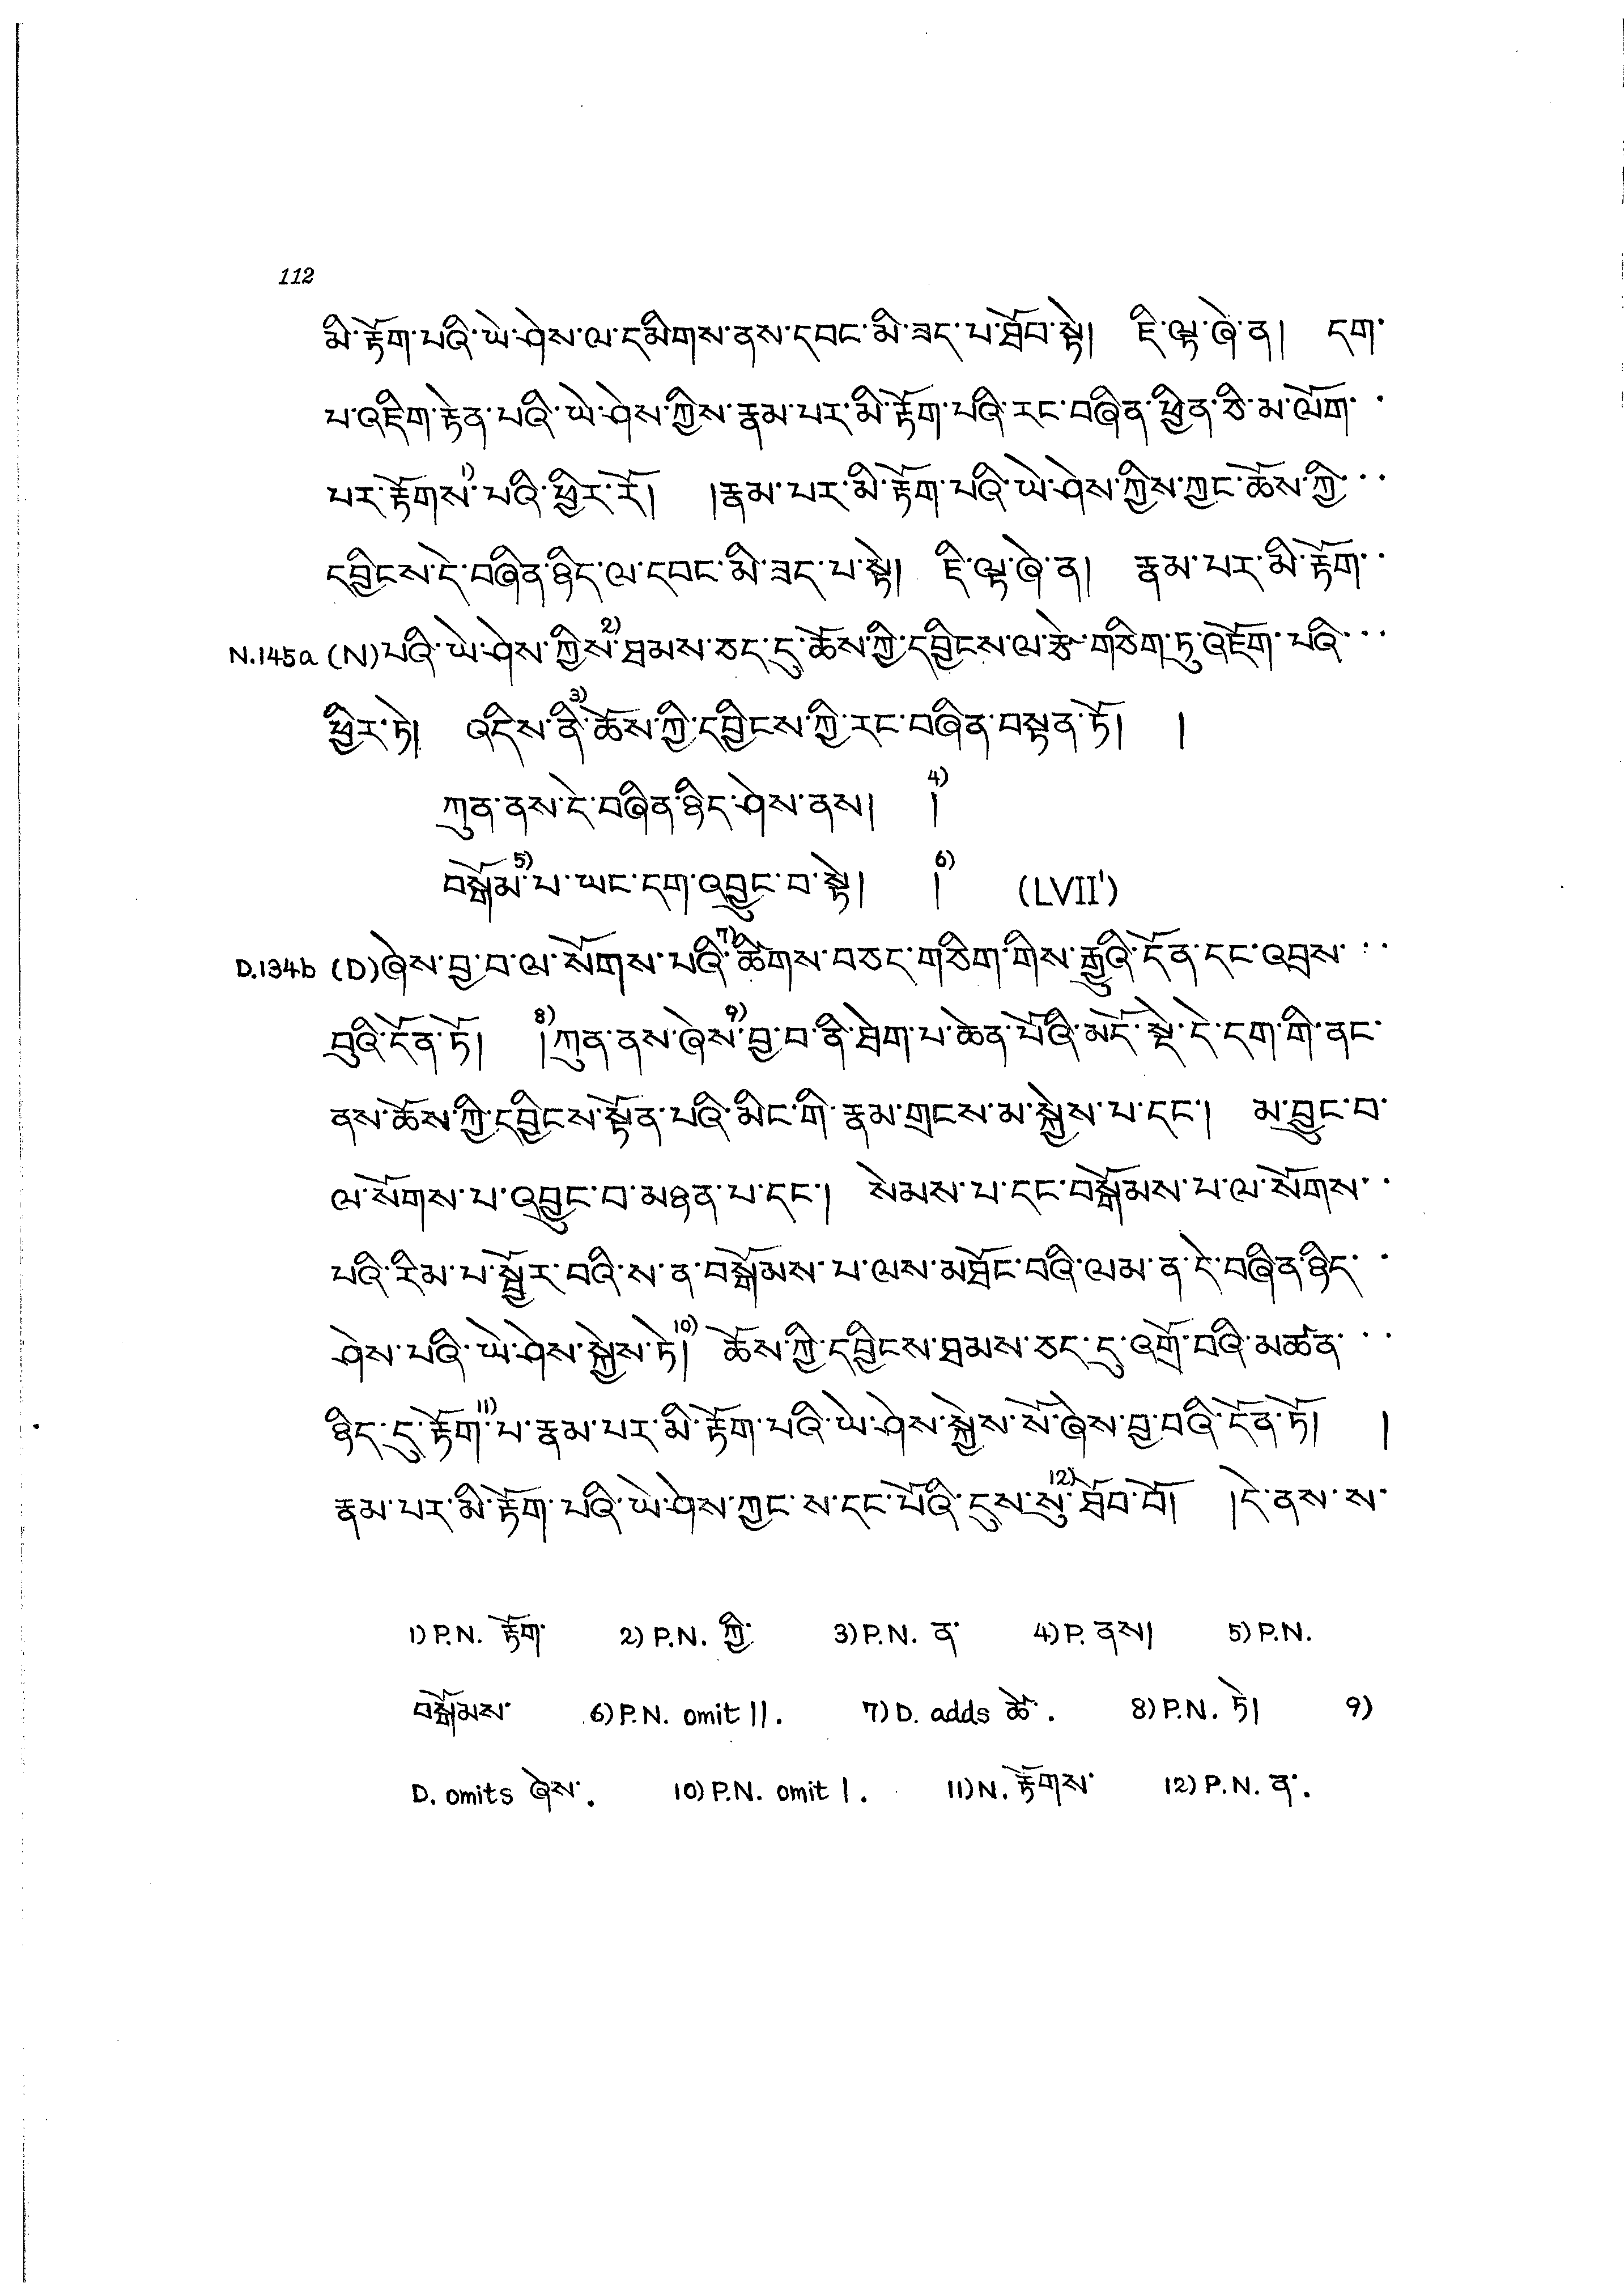 112
མི་རྟོག་པའི་ཡེ་ཤེས་ལ་དམིགས་ནས་དབང་མི་ཟད་པ་ཐོབ་སྟེ། ཇི་ལྟ་ཞེ་ན། དག་
པ་འཇིག་རྟེན་པའི་ཡེ་ཤེས་ཀྱིས་རྣམ་པར་མི་རྟོག་པའི་རང་བཞིན་ཕྱིན་ཅི་མ་ལོག་ ·
པར་རྟོགས་1)པའི་ཕྱིར་རོ། །རྣམ་པར་མི་རྟོག་པའི་ཡེ་ཤེས་ཀྱིས་ཀྱང་ཆོས་ཀྱི་ · ·
དབྱིངས་དེ་བཞིན་ཉིད་ལ་དབང་མི་ཟད་པ་སྟེ། ཇི་ལྟ་ཞེ་ན། རྣམ་པར་མི་རྟོག་ ·
N.145a (N)པའི་ཡེ་ཤེས་ཀྱིས་2)ཐམས་ཅད་དུ་ཆོས་ཀྱི་དབྱིངས་ལ་རྩེ་གཅིག་ཏུ་འཇོག་པའི་ · ·
ཕྱིར་ཏེ། འདིས་ནི་3)ཆོས་ཀྱི་དབྱིངས་ཀྱི་རང་བཞིན་བསྟན་ཏོ། །
ཀུན་ནས་དེ་བཞིན་ཉིད་ཤེས་ནས། །4)
བསྒོམ་5)པ་ཡང་དག་འབྱུང་བ་སྟེ། །6) (LVII')
D.134b (D)ཞེས་བྱ་བ་ལ་སོགས་པའི་7)ཚིགས་བཅད་གཅིག་གིས་རྒྱུའི་དོན་དང་འབྲས་ · ·
བུའི་དོན་ཏོ། །8)ཀུན་ནས་ཞེས་9)བྱ་བ་ནི་ཐེག་པ་ཆེན་པོའི་མདོ་སྡེ་དེ་དག་གི་ནང་
ནས་ཆོས་ཀྱི་དབྱིངས་སྟོན་པའི་མིང་གི་རྣམ་གྲངས་མ་སྐྱེས་པ་དང་། མ་བྱུང་བ་
ལ་སོགས་པ་འབྱུང་བ་མཉན་པ་དང་། སེམས་པ་དང་བསྒོམས་པ་ལ་སོགས་ ·
པའི་རིམ་པ་སྦྱོར་བའི་ས་ན་བསྒོམས་པ་ལས་མཐོང་བའི་ལམ་ན་དེ་བཞིན་ཉིད་ ·
ཤེས་པའི་ཡེ་ཤེས་སྐྱེས་ཏེ།10) ཆོས་ཀྱི་དབྱིངས་ཐམས་ཅད་དུ་འགྲོ་བའི་མཚན་ · ·
ཉིད་དུ་རྟོག་11)པ་རྣམ་པར་མི་རྟོག་པའི་ཡེ་ཤེས་སྐྱེས་སོ་ཞེས་བྱ་བའི་དོན་ཏོ། །
རྣམ་པར་མི་རྟོག་པའི་ཡེ་ཤེས་ཀྱང་ས་དང་པོའི་དུས་སུ་12)ཐོབ་བོ། །དེ་ནས་ས་
1) P.N. རྟོག་ 2) P.N. ཀྱི་ 3) P.N. ན་ 4) P. ནས། 5) P.N.
བསྒོམས་ 6) P.N. omit ||. 7) D. adds ཚེ་. 8) P.N. ཏེ། 9)
D. omits ཞེས་. 10) P.N. omit |. 11) N. རྟོགས་ 12) P.N. ན་.